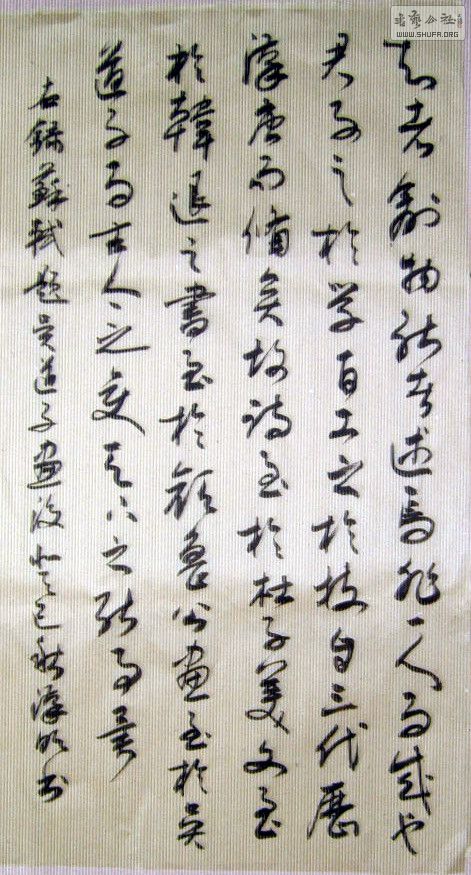 书艺公社
WWW.SHUFA.ORG
知者創物能者述焉非一人而成也
君子之於学百工之於技自三代歷
漢唐而備矣故詩至於杜子美文至
於韓退之書至於顏魯公畫至於吳
道子而古人之變天下之能事畢
右錄蘇軾題吳道子畫後 巳秋漢 书